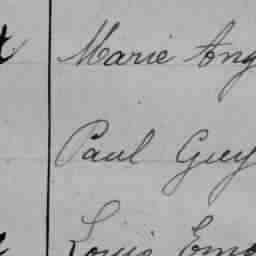 Marie Ang
Paul Guy
Louis Emo